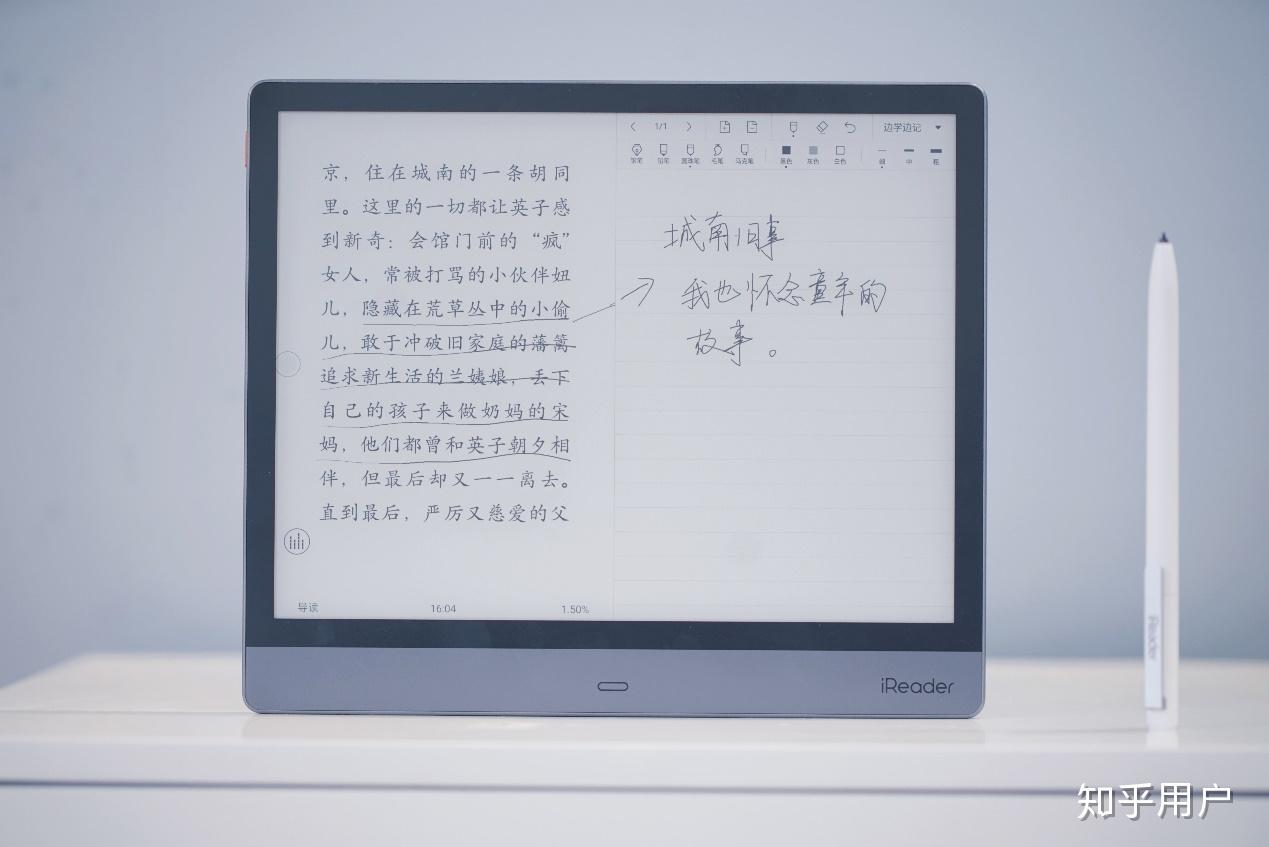 京，住在城南的一条胡同
里。这里的一切都让英子感
到新奇：会馆门前的“疯”
女人，常被打骂的小伙伴妞
儿，隐藏在荒草丛中的小偷
儿，敢于冲破旧家庭的藩篱
追求新生活的兰姨娘，丢下
自己的孩子来做奶妈的宋
妈，他们都曾和英子朝夕相
伴，但最后却又一一离去。
直到最后，严厉又慈爱的父
导读 16:04 1.50%
1/1 边学边记
钢笔 铅笔 圆珠笔 毛笔 马克笔 黑色 灰色 白色 细 中 粗
城南旧事
我也怀念童年的
故事。
iReader
iReader
知乎用户